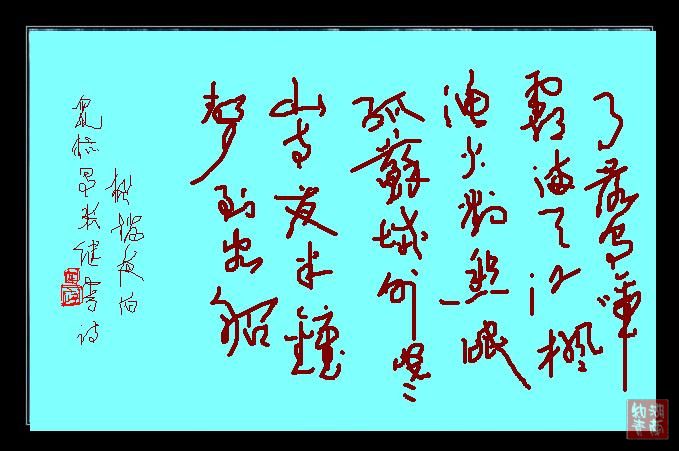 月落乌啼
霜满天江枫
渔火对愁眠
姑蘇城外寒
山寺夜半鐘
聲到客船
枫桥夜泊
鼠标张继诗